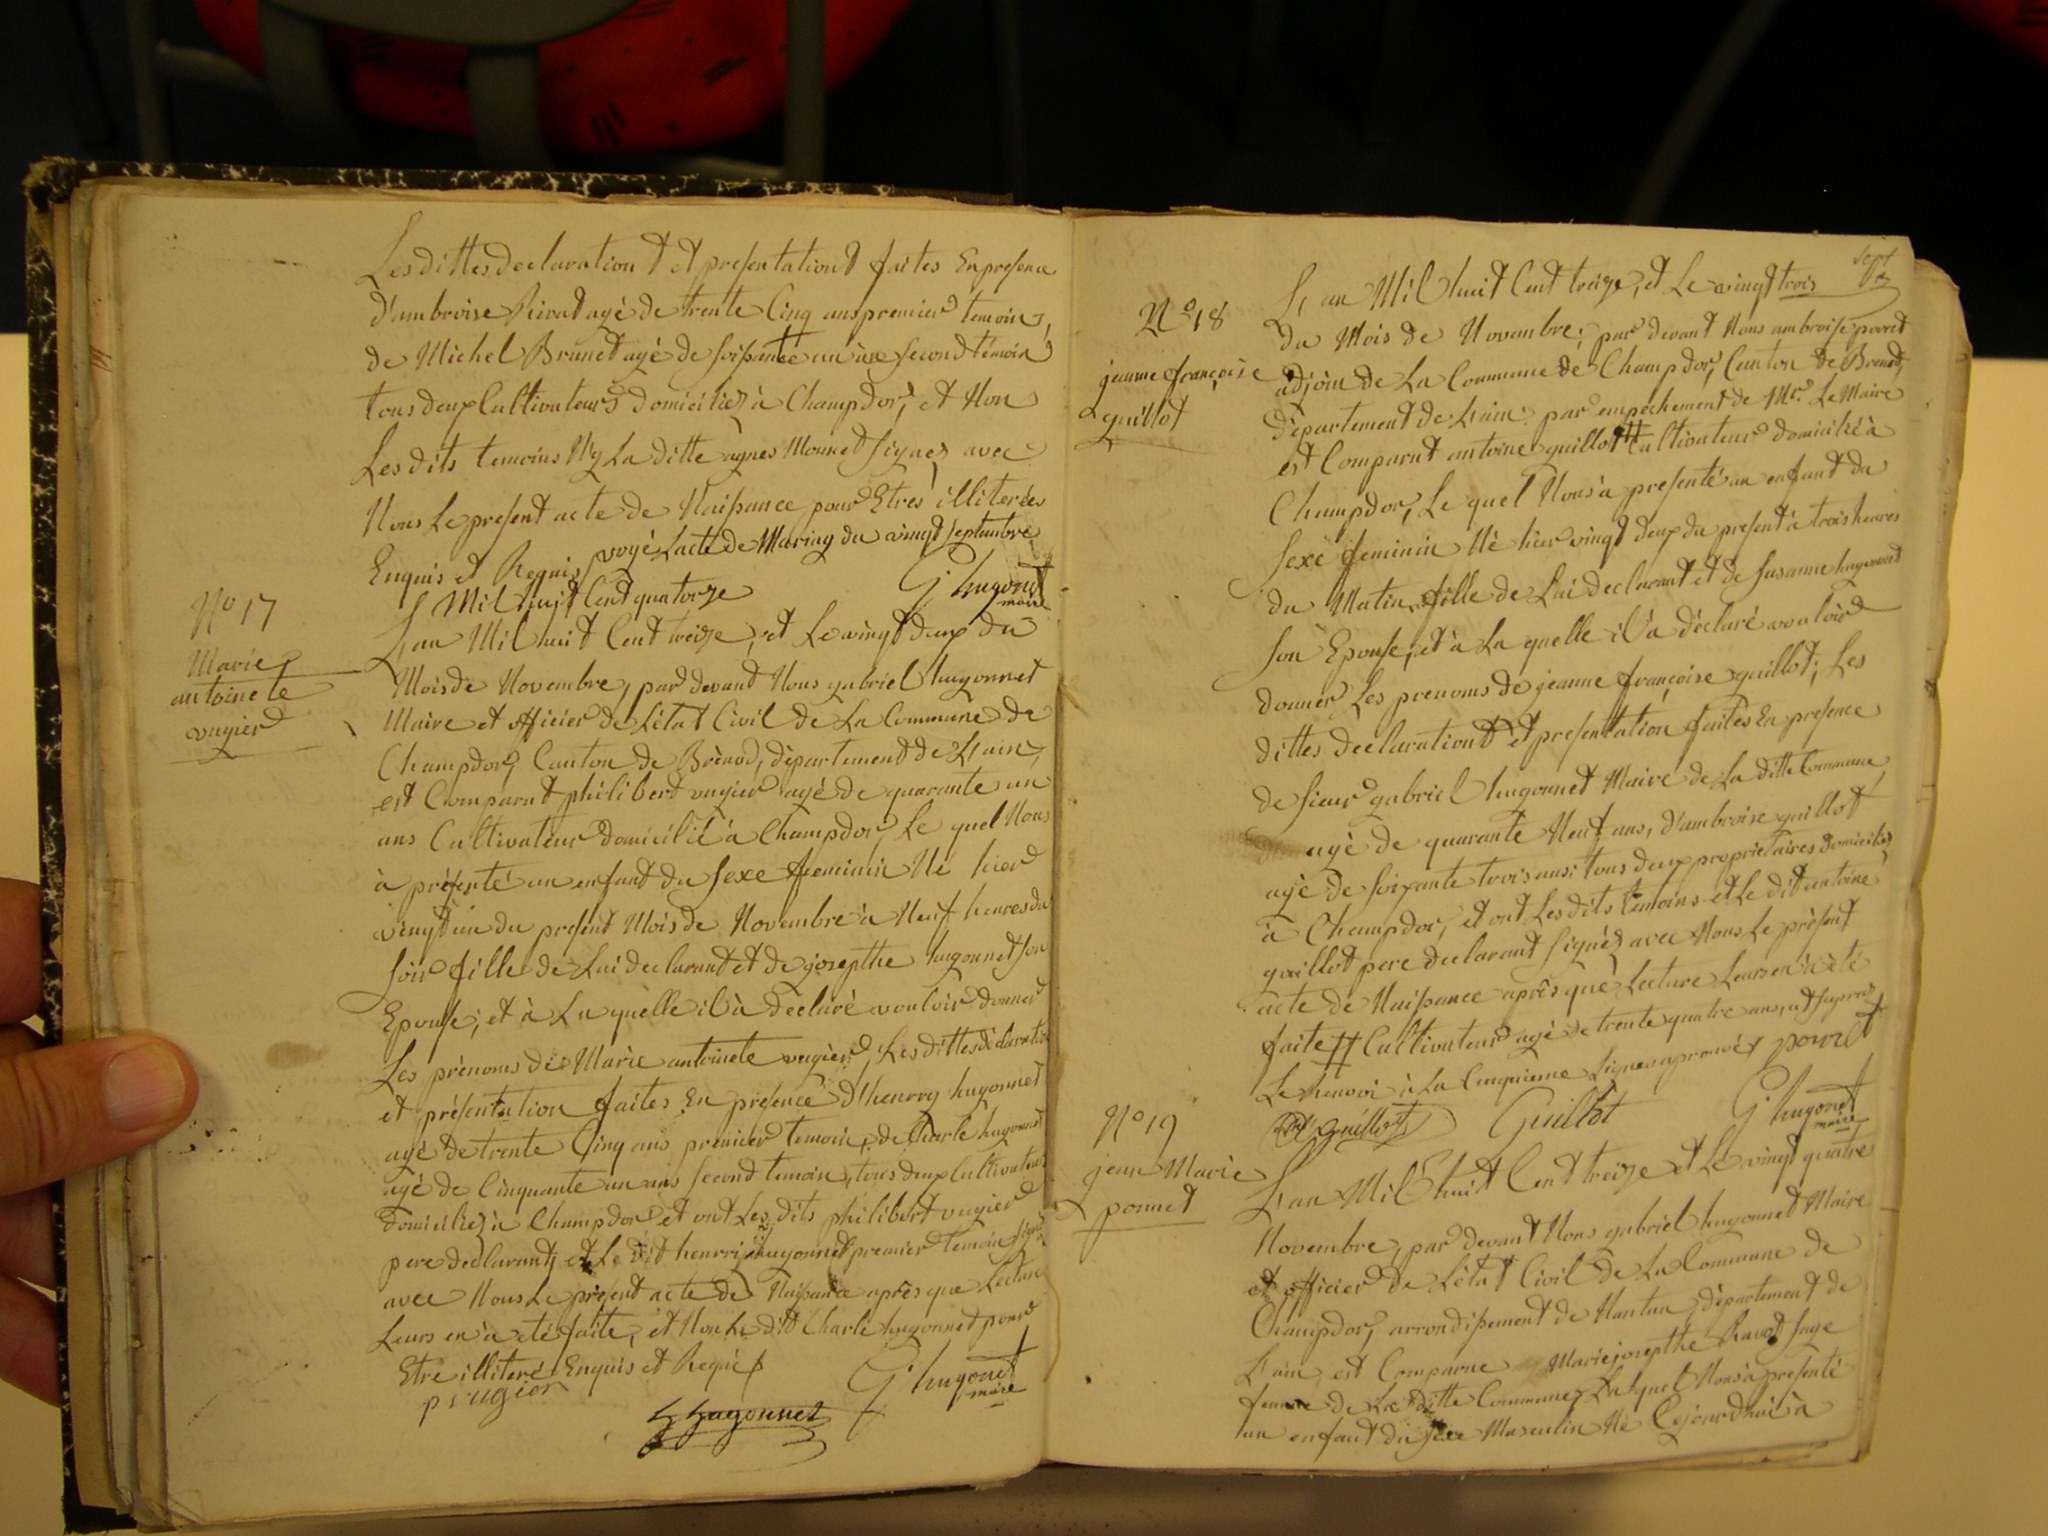 Les dittes declarationt et presentationt faites En presence
d'ambroise Rivat agé de trente Cinq ans premier temoin,
de Michel Brunet agé de soissente un ans second témoin
tous deux Cultivateurs domiciliez à Champdor, et Non
Les dits temoins Ny La ditte agnes Monnet signez avec
Nous Le present acte de Naissance pour Etres illiterées
Enquis et Requis voyé Lacte de Mariag du vingt septembre
Mil huit Cent quatorze G hugonet
maire
N° 17
Marie
antoinete
vugier
L'an Mil huit Cent treize, et Le vingt deux du
Mois de Novembre, par devant Nous gabriel hugonnet
Maire et officier de L'état Civil de La Commune de
Champdor, Canton de Brénod, département de L'ain,
est Comparut philibert vugier agé de quarante un
ans Cultivateur domicilié à Champdor Le quel Nous
à présenté un enfant du sexe feminin Né hier
vingt un du present Mois de Novembre à Neuf heures du
soir fille de Lui declarant et de josepthe hugonnet son
Epouse, et à La quelle il à déclaré vouloir donner
Les prénoms de Marie antoinete vugier, Les dittes déclaration
et présentation faites En présence d'henrry hugonnet
agé de trente Cinq ans premier temoin, de Charle hugonnet
agé de Cinquante un ans second temoin, tous deux Cultivateurs
domiciliez à Champdor et ont Les dits philibert vugier
pere declarant, et Le dit henrri hugonnet premier temoin signé
avec Nous Le présent acte de Naissance après que Lecture
Leurs en à eté faite, et Non Le dit Charle hugonnet pour
Etre illiteré Enquis et Requis
p vugier G hugonet
maire
h hugonnet
sept
N° 18
jeanne françoise
guillot
L'an Mil huit Cent treize, et Le vingt trois
du Mois de Novembre, par devant Nous ambroise porret
adjoin de La Commune de Champdor, Canton de Brenod,
département de L'ain par empechement de Mr. Le Maire
est Comparut antoine guillot Cultivateur domicilié à
Champdor, Le quel Nous à presenté un enfant du
sexe feminin Né hier vingt deux du present à trois heures
du Matin, fille de Lui declarant et de susanne hugonnet
son Epouse, et à La quelle il à déclaré vouloir
donner Les prenoms de jeanne françoise guillot, Les
dittes declarationt et presentation faites En presence
de sieur gabriel hugonnet Maire de La ditte Commune,
agé de quarante Neuf ans, d'ambroise guillot
agé de soixante trois ans: tous deux proprietaires domiciliez
à Champdor, et ont Les dits temoins et Le dit antoine
guillot pere declarant signéz avec Nous Le présent
acte de Naissance après que Lecture Leurs en à eté
faite # Cultivateur agé de trente quatre ans,
Le renvoi à La Cinquieme Ligne aprouvé porret
guillot Guillot G hugonet
maire
N° 19
jean Marie
ponnet
L'an Mil huit Cent treize et Le vingt quatre
Novembre, par devant Nous gabriel hugonnet Maire
et officier de L'état Civil de La Commune de
Champdor, arrondissement de Nantua, département de
L'ain, est Comparue Marie josepthe Ravot sage
femme de La ditte Commune, Laquel Nous à presenté
un enfant du sexe Masculin Né Cejourdhui à